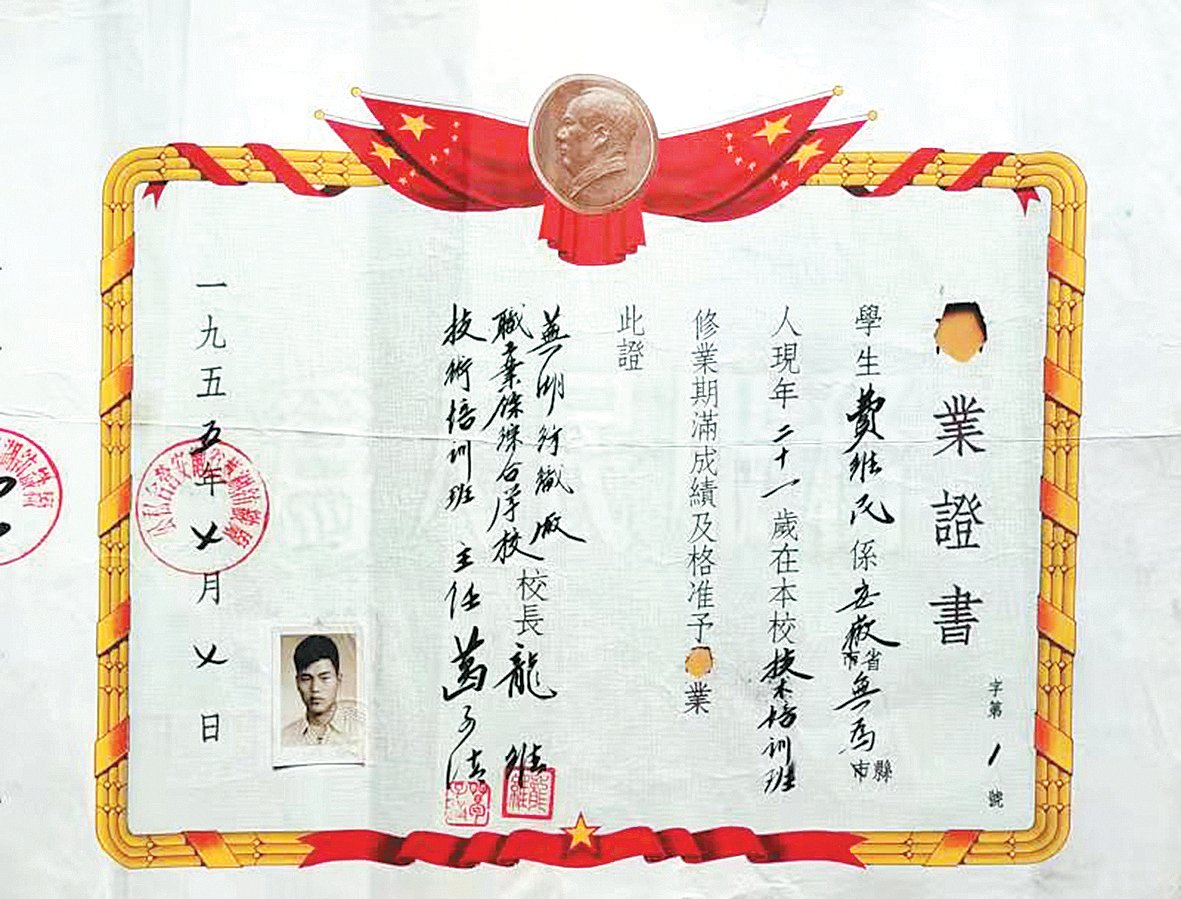 業證書
字第1號
學生費維民係安徽省市無為縣市
人現年二十一歲在本校技术培训班
修業期滿成績及格准予業
此證
蕪湖纺織廠
職業餘綜合学校校長龍維
技術培训班主任葛子
一九五五年七月七日